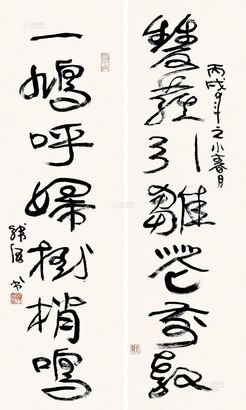 雙燕引雛花教
丙戌之小春月
一鳩呼婦樹梢鳴